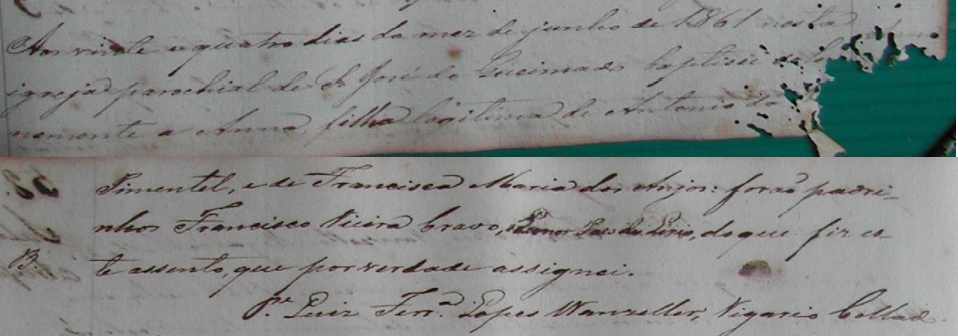 Aos vinte e quatro dias do mez de junho de 1861 nesta
igreja parochial de S. José do Queimado baptisei
nemente a Anna, filha legitima de Antonio
Pimentel, e de Francisca Maria dos Anjos: forão padri-
nhos Francisco Vieira Bravo, do que fiz es-
te assento, que por verdade assignei.
Pe. Luiz Ferra. Lopes Wanzeller, Vigario Collado.